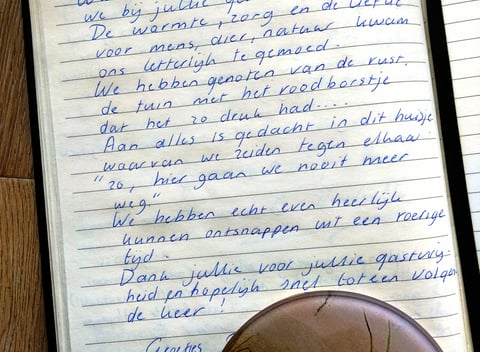 we bij jullie
De warmte, zorg en de liefde
voor mens, dier, natuur kwam
ons letterlijk tegemoed.
We hebben genoten van de rust,
de tuin met het roodborstje
dat het zo druk had....
Aan alles is gedacht in dit huisje
waarvan we zeiden tegen elkaar
"zo, hier gaan we nooit meer
weg."
We hebben echt even heerlijk
kunnen ontsnappen uit een roerige
tijd.
Dank jullie voor jullie gastvrij-
heid en hopelijk snel tot een volgen
de keer!
Groetjes